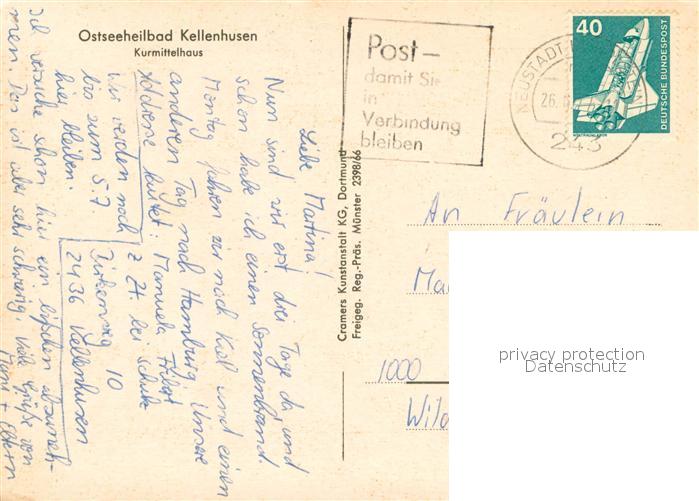 Ostseeheilbad Kellenhusen
Kurmittelhaus
Liebe Martina!
Nun sind wir erst drei Tage da und
schon habe ich einen Sonnenbrand.
Montag fahren wir nach Kiel und einen
anderen Tag nach Hamburg. Unsere
Addresse lautet: Manuela
z Zt. bei Schulz
Birkenweg 10
2436 Kellenhusen
Wir werden noch
bis zum 5.7
hier bleiben.
Ich versuche schon hier ein bißchen abzuneh-
men. Das ist aber sehr schwierig. Viele Grüße von
+ Eltern
Cramers Kunstanstalt KG, Dortmund
Freigeg. Reg.-Präs. Münster 2398/66
Post-
damit Sie
in
Verbindung
bleiben
NEUSTADT
26.
243
40
DEUTSCHE BUNDESPOST
WELTRAUMLABOR
An Fräulein
Ma
1000
Wil
privacy protection
Datenschutz